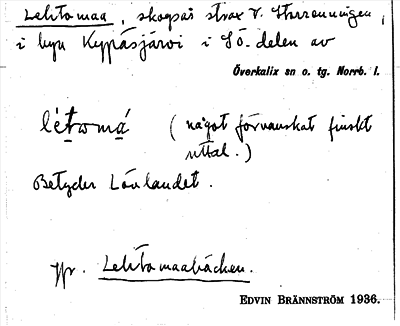 Lehtomaa, skogsås strax v. Storrönningen,
i byn Kypäsjärvi i SÖ-delen av
Överkalix sn o. tg. Norrb. l.
létomá (något förvanskat finskt
uttal.)
Betyder Lövlandet.
Jfr. Lehtomaabäcken.
EDVIN BRÄNNSTRÖM 1936.